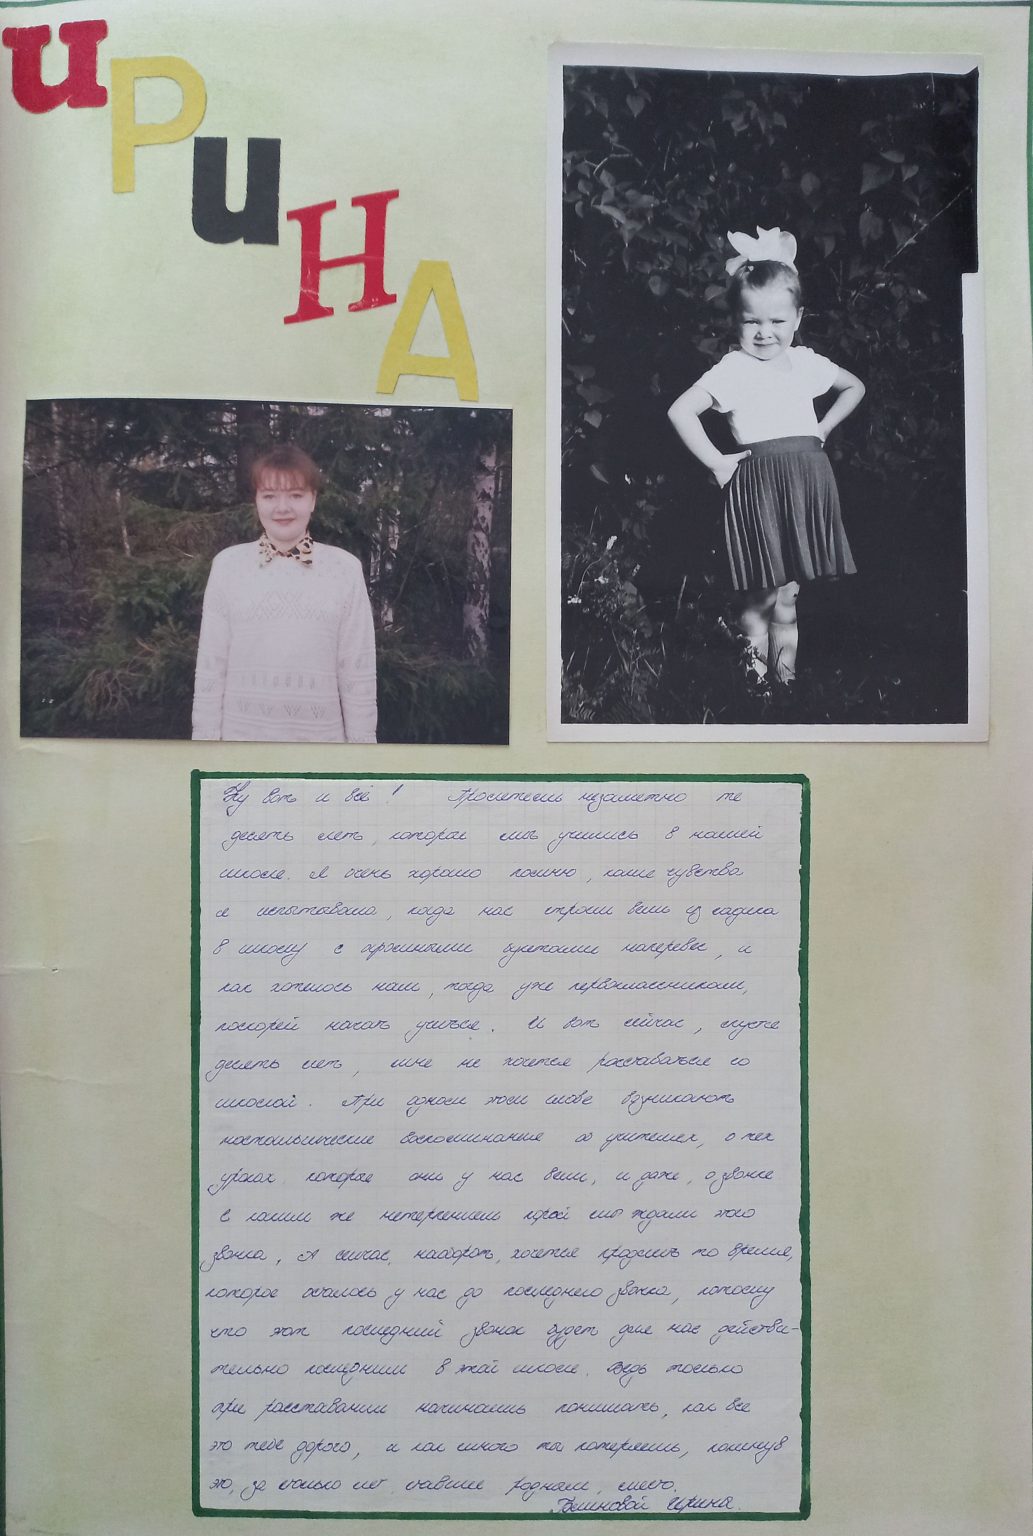 иРиНА
Ну вот и всё! Пролетели незаметно те
десять лет, которые мы учились в нашей
школе. Я очень хорошо помню, какие чувства
я испытывала, когда нас строем вели из садика
в школу с огромными букетами наперевес, и
как хотелось нам, тогда уже первоклассникам,
поскорей начать учиться. И вот сейчас, спустя
десять лет, мне не хочется расставаться со
школой. При одном этом слове возникают
ностальгические воспоминания об учителях, о тех
уроках которые они у нас вели, и даже, о звонке
с каким же нетерпением порой мы ждали этого
звонка, А сейчас, наоборот, хочется продлить то время,
которое осталось у нас до последнего звонка, потому
что этот последний звонок будет для нас действи-
тельно последним в этой школе. Ведь только
при расставании начинаешь понимать, как все
это тебе дорого, и как много ты потеряешь, покинув
это, за столько лет, ставшее родным, место.
Ирина.